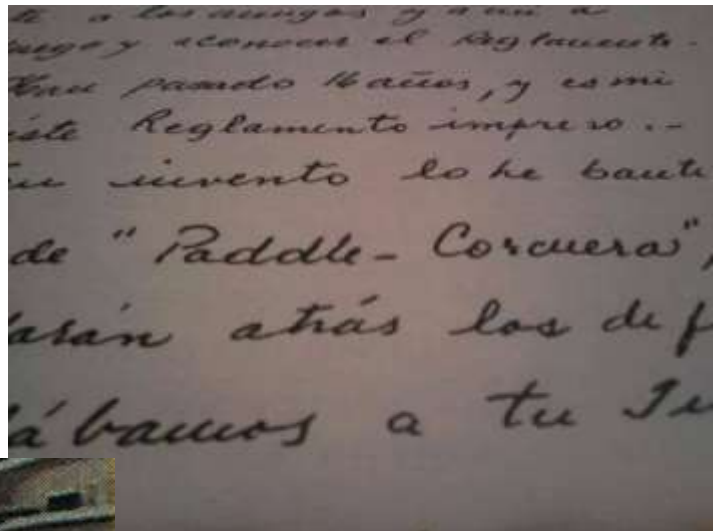 te a los amigos y a mi a
juego y a conocer el Reglamento.
Han pasado 16 años, y es mi
éste Reglamento impreso.-
tu invento lo he bauti
de "Paddle-Corcuera",
darán atrás los def
ábamos a tu Ju